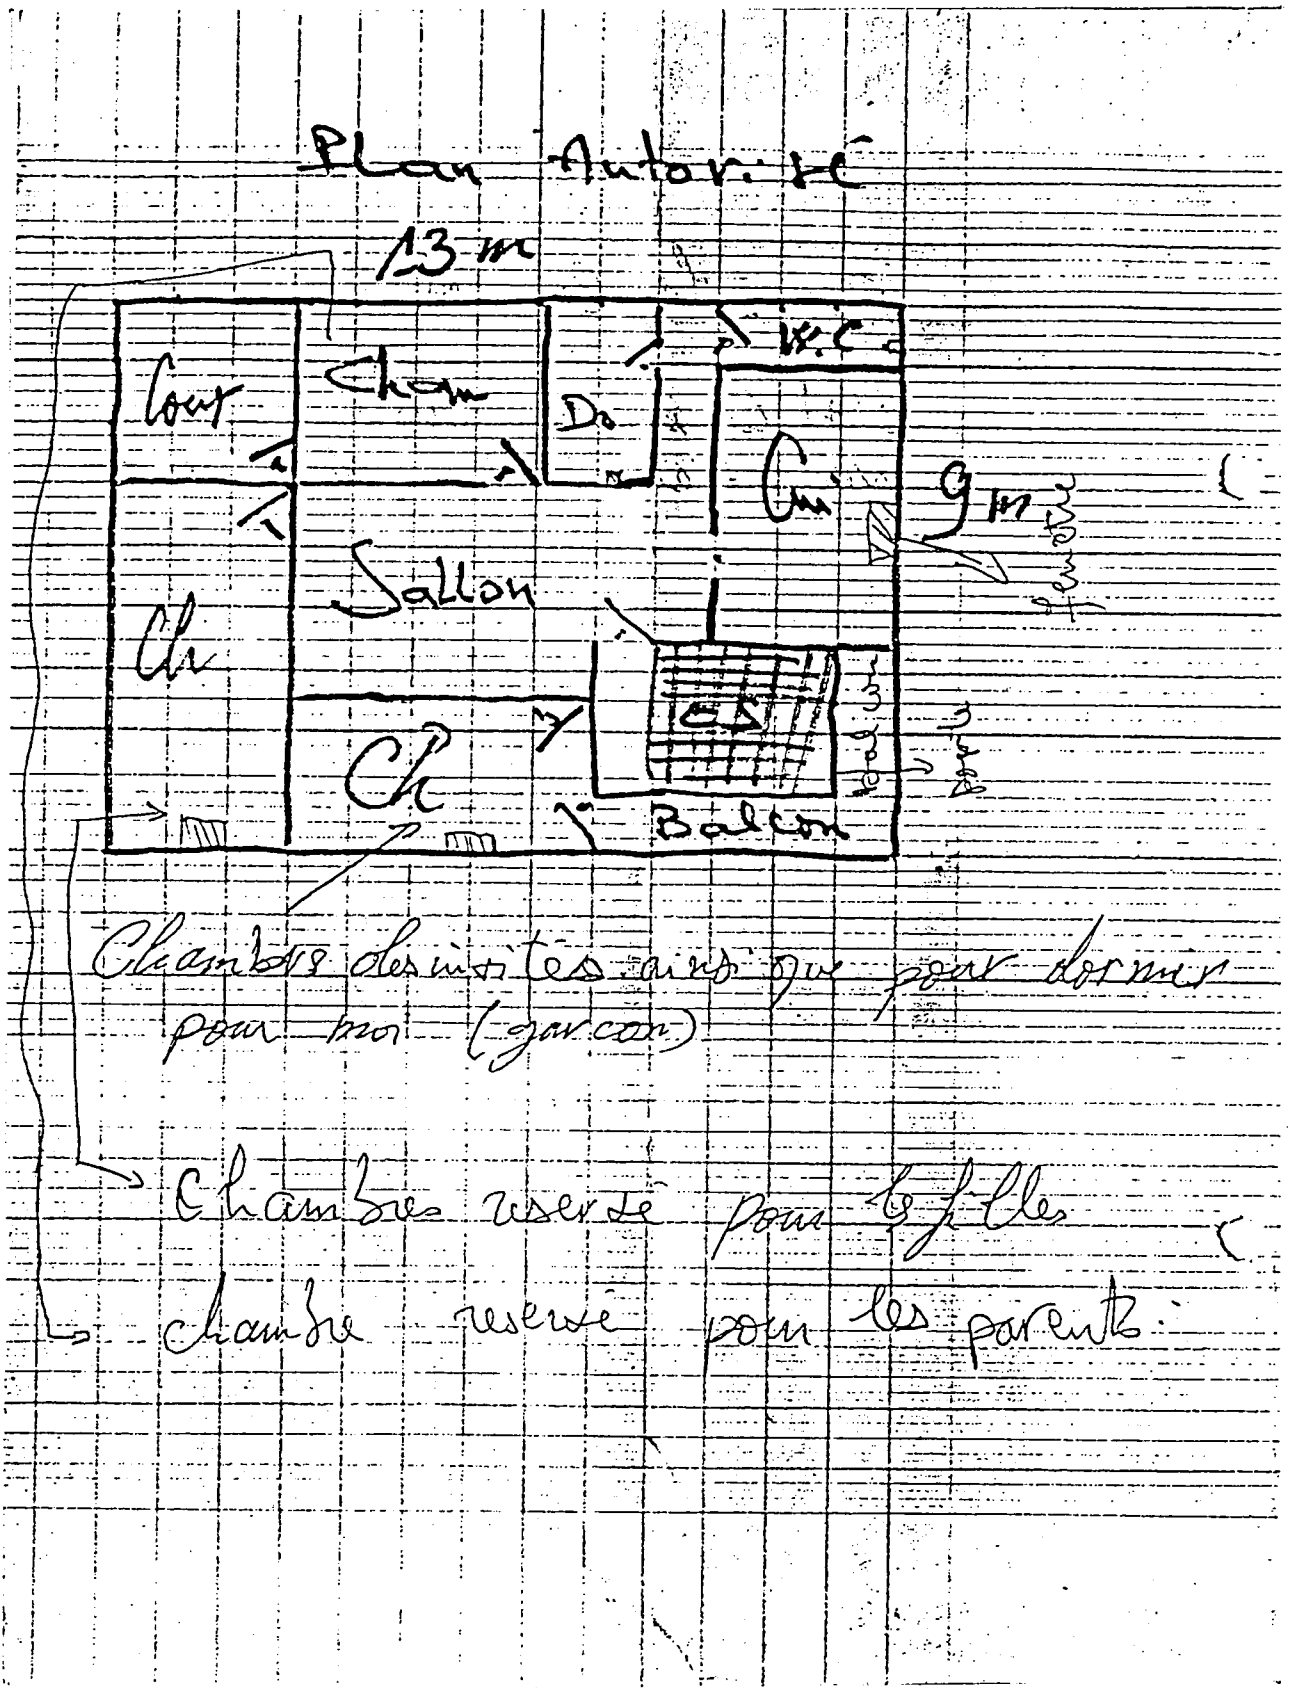 Plan Autorisé
13 m
Cour
Cham
Do
W.C.
Cui
9 m
fenetre
Sallon
Ch
Ch
C S
bal con
porte
Balcon
Chambre des invités ainsi que pour dormir
pour moi (garcon)
Chambres reservé pour les filles
chambre reservé pour les parents.